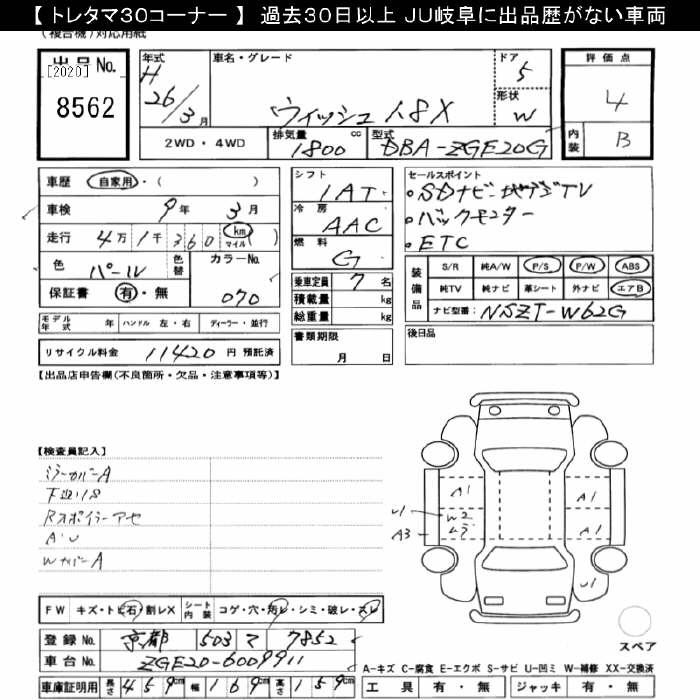 【 トレタマ30コーナー 】 過去30日以上 JU岐阜に出品歴がない車両
(複合機)対応用紙
出品 No.
[2020]
8562
年式 H 26/3月
車名・グレード
ウィッシュ 1.8X
ドア 5
形状 W
評価点
4
内装 B
2WD ・ 4WD
排気量 1800 cc
型式 DBA-ZGE20G
車歴 自家用・( )
車検 9年 3月
走行 4万1千360 (km マイル)
色 パール 色替 カラーNo. 070
保証書 有・無
モデル年式 年 ハンドル 左・右 ディーラー・並行
リサイクル料金 11420 円 預託済
シフト 1AT
冷房 AAC
燃料 G
乗車定員 7 名
積載量 kg
総重量 kg
書類期限
月 日
セールスポイント
・SDナビ 地デジTV
・バックモニター
・ETC
装備品
S/R 純A/W P/S P/W ABS
純TV 純ナビ 革シート 外ナビ エアB
ナビ型番: NSZT-W62G
後日品
【出品店申告欄(不良箇所・欠品・注意事項等)】
【検査員記入】
ミラーカバーA
Rスポイラーアセ
A・U
WカバーA
A1
A1
U1
W2
A3
A1
U1
FW キズ・トビ石 割レX シート内装 コゲ・穴・汚レ・シミ・破レ・スレ
登録 No. 京都 503 マ 7852
車台 No. ZGE20-6009911
車庫証明用 長さ 459cm 幅 169cm 高さ 159cm
スペア
A-キズ C-腐食 E-エクボ S-サビ U-凹ミ W-補修 XX-交換済
工具 有・無 ジャッキ 有・無